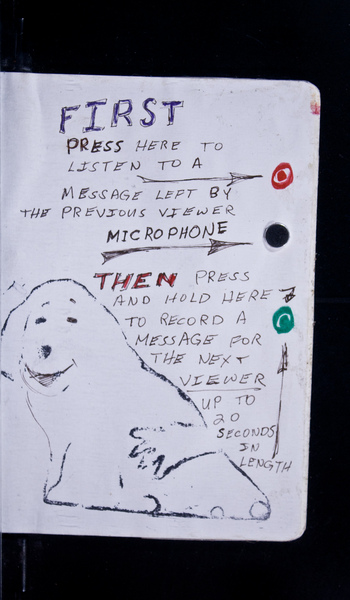 FIRST
PRESS HERE TO
LISTEN TO A
MESSAGE LEFT BY
THE PREVIOUS VIEWER
MICROPHONE
THEN PRESS
AND HOLD HERE
TO RECORD A
MESSAGE FOR
THE NEXT
VIEWER
UP TO
20
SECONDS
IN
LENGTH